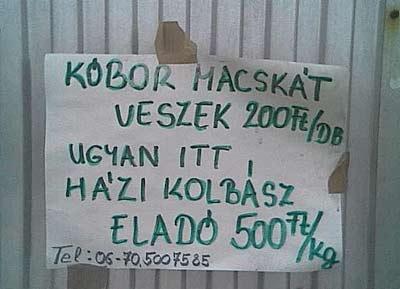 KÓBOR MACSKÁT
VESZEK 200Ft/DB
UGYAN ITT
HÁZI KOLBÁSZ
ELADÓ 500Ft/kg
Tel: 06-70,5007585